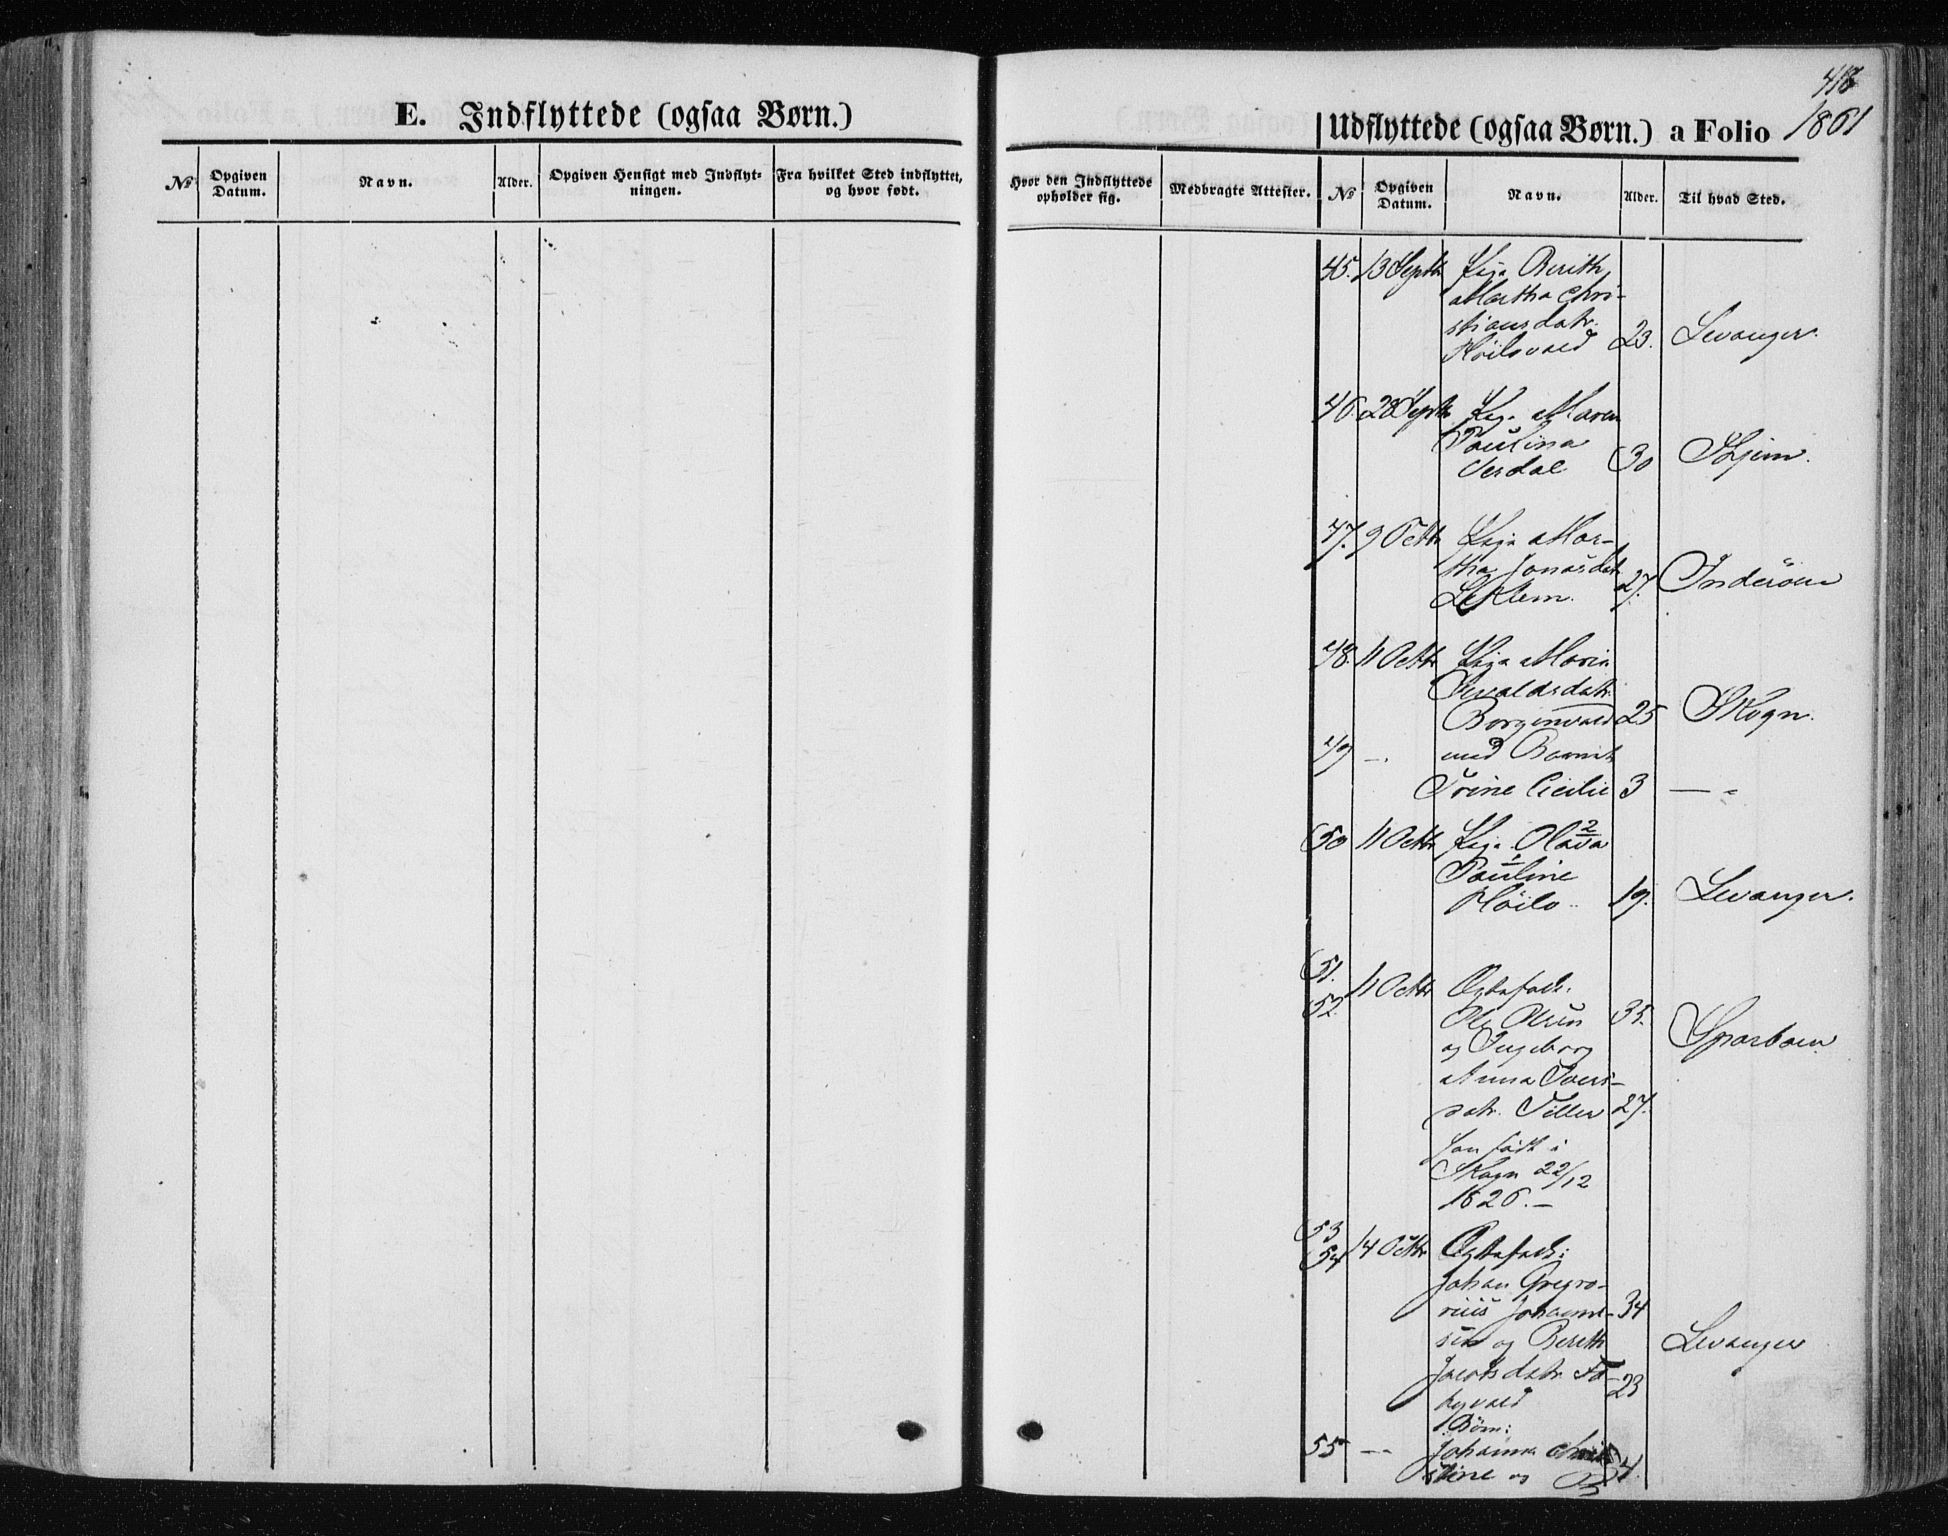 E. Indflyttede (ogsaa Børn.)
Udflyttede (ogsaa Børn.) a Folio
1861
No
Opgiven Datum.
Navn.
Alder.
Opgiven Hensigt med Indflyt-
ningen.
Fra hvilket Sted indflyttet,
og hvor født.
Hvor den Indflyttede
opholder sig.
Medbragte Attester.
No
Opgiven Datum.
Navn.
Alder.
Til hvad Sted.
45. 13 Septbr Pige Berith
Martha Chri-
stiansdatr.
23. Levanger.
46. 28 Septbr Pige Maren
Paulina
30
47. 9 Octbr Pige Mar-
tha Jonasdatr
Leklem. 27. Inderöen
48. 11 Octbr Pige Maria
Sevaldsdatr.
Borgenvald 25 Skogn.
49 — med Barnet
Trine Cecilie 3 — "
50 11 Octbr Pige Olava
Pauline
19. Levanger.
51.
52. 11 Octbr Ægtefolk.
Ole Olsen 35. Sparboen
og Ingeborg
Anna Ivers-
datr. Tiller 27.
født i
Skogn 22/12
1826. —
53
54 14 Octbr Ægtefolk:
Johan Gregro-
rius Johanne- 34
sen og Bereth Levanger
Jacobsdatr. 23
Börn:
55 — Johanna
stine og 4.